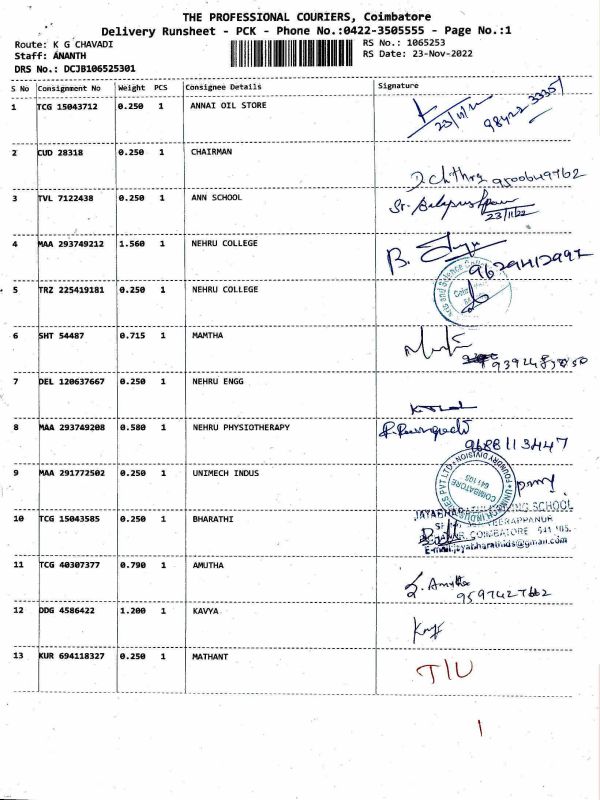 THE PROFESSIONAL COURIERS, Coimbatore
Delivery Runsheet - PCK - Phone No.:0422-3505555 - Page No.:1
Route: K G CHAVADI
Staff: ANANTH
DRS No.: DCJB106525301
RS No.: 1065253
RS Date: 23-Nov-2022
S No Consignment No Weight PCS Consignee Details Signature
1 TCG 15043712 0.250 1 ANNAI OIL STORE
23/11/22
2 CUD 28318 0.250 1 CHAIRMAN
3 TVL 7122438 0.250 1 ANN SCHOOL
23/11/22
4 MAA 293749212 1.560 1 NEHRU COLLEGE
9629412997
5 TRZ 225419181 0.250 1 NEHRU COLLEGE
6 SHT 54487 0.715 1 MAMTHA
7 DEL 120637667 0.250 1 NEHRU ENGG
8 MAA 293749208 0.580 1 NEHRU PHYSIOTHERAPY
9688113447
9 MAA 291772502 0.250 1 UNIMECH INDUS
FOUNDRY DIVISION
COIMBATORE
641 105
10 TCG 15043585 0.250 1 BHARATHI
SCHOOL
COIMBATORE 641 105.
11 TCG 40307377 0.790 1 AMUTHA
S. Amutha
12 DDG 4586422 1.200 1 KAVYA
13 KUR 694118327 0.250 1 MATHANT
T/U
1